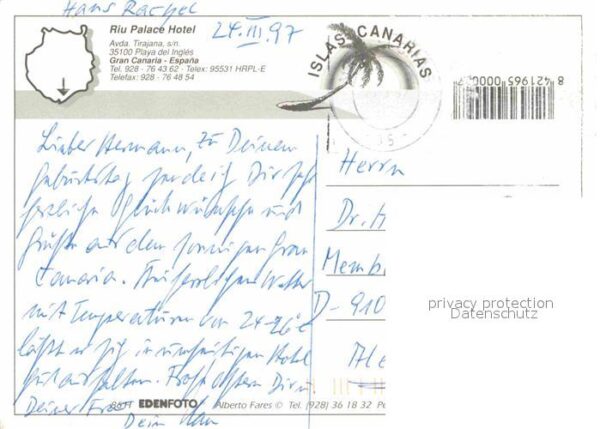 Hans
Riu Palace Hotel
24.III.97
Avda. Tirajana, s/n.
35100 Playa del Inglés
Gran Canaria - España
Tel. 928 - 76 43 62 · Telex: 95531 HRPL-E
Telefax: 928 - 76 48 54
ISLAS CANARIAS
8 421965 0000
Lieber Hermann, zu Deinem
Geburtstag sende ich Dir sehr
herzliche Glückwünsche und
Grüße aus dem sonnigen Gran
Canaria. Wetter
mit Temperaturen von 24-26°C
läßt es sich in Hotel
gut aushalten. Frohe Ostern Dir u.
Deiner Frau
Dein Hans
Herrn
Dr. H
Memb
D-910
privacy protection
Datenschutz
EDENFOTO
Alberto Fares © Tel. (928) 36 18 32